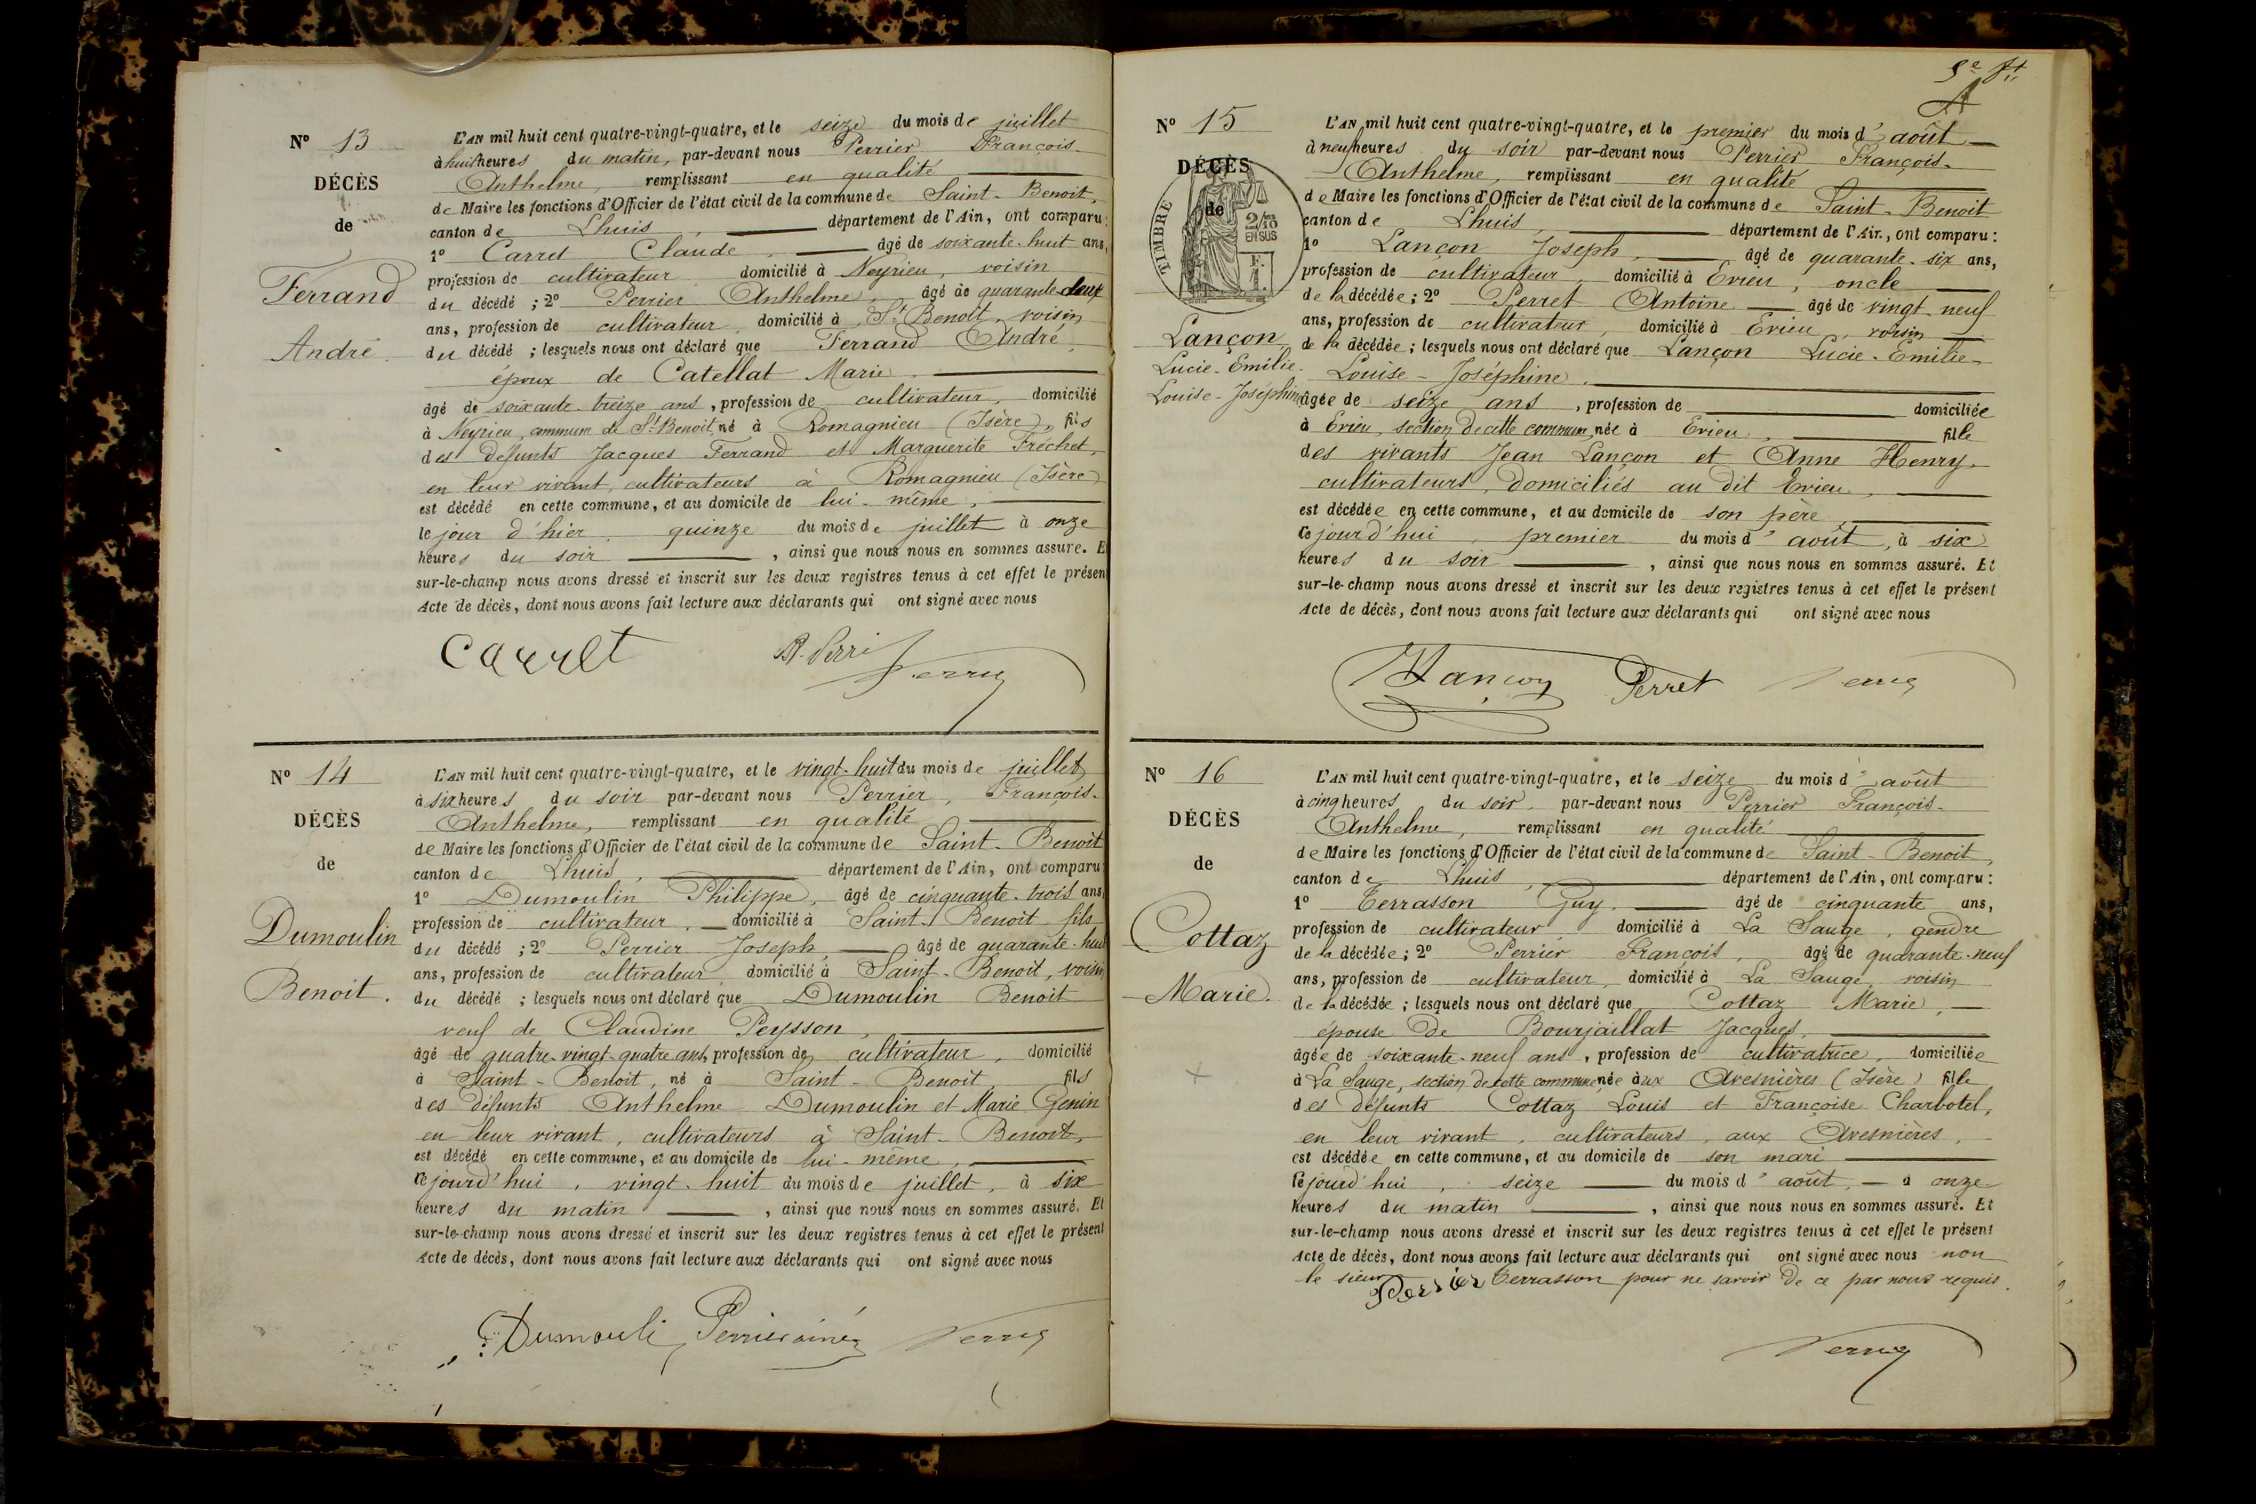 Nº 13
DÉCÈS
de
Ferrand
André
L'AN mil huit cent quatre-vingt-quatre, et le seize du mois de juillet
à huit heures du matin, par-devant nous Perrier François-
Anthelme, remplissant en qualité
de Maire les fonctions d'Officier de l'état civil de la commune de Saint-Benoit,
canton de Lhuis, département de l'Ain, ont comparu:
1º Carret Claude, âgé de soixante-huit ans,
profession de cultivateur domicilié à Neyrieu, voisin
du décédé ; 2º Perrier Anthelme, âgé de quarante-deux
ans, profession de cultivateur, domicilié à St Benoit, voisin
du décédé ; lesquels nous ont déclaré que Ferrand André,
époux de Catellat Marie.
âgé de soixante-treize ans, profession de cultivateur, domicilié
à Neyrieu, commune de St Benoit, né à Romagnieu (Isère), fils
des défunts Jacques Ferrand et Marguerite Fréchet,
en leur vivant, cultivateurs à Romagnieu (Isère)
est décédé en cette commune, et au domicile de lui-même,
le jour d'hier, quinze du mois de juillet à onze
heures du soir, ainsi que nous nous en sommes assuré. Et
sur-le-champ nous avons dressé et inscrit sur les deux registres tenus à cet effet le présen
Acte de décès, dont nous avons fait lecture aux déclarants qui ont signé avec nous
Carret
Nº 14
DÉCÈS
de
Dumoulin
Benoit.
L'AN mil huit cent quatre-vingt-quatre, et le vingt-huit du mois de juillet
à six heures du soir par-devant nous Perrier, François-
Anthelme, remplissant en qualité
de Maire les fonctions d'Officier de l'état civil de la commune de Saint-Benoit
canton de Lhuis, département de l'Ain, ont comparu
1º Dumoulin Philippe, âgé de cinquante-trois ans,
profession de cultivateur, domicilié à Saint-Benoit fils
du décédé ; 2º Perrier Joseph, âgé de quarante-huit
ans, profession de cultivateur domicilié à Saint-Benoit, voisin
du décédé ; lesquels nous ont déclaré que Dumoulin Benoit
veuf de Claudine Peysson,
âgé de quatre-vingt-quatre ans, profession de cultivateur, domicilié
à Saint-Benoit, né à Saint-Benoit fils
des défunts Anthelme Dumoulin et Marie Genin
en leur vivant, cultivateurs à Saint-Benoit,
est décédé en cette commune, et au domicile de lui-même,
ce jourd'hui, vingt-huit du mois de juillet, à six
heures du matin, ainsi que nous nous en sommes assuré. Et
sur-le-champ nous avons dressé et inscrit sur les deux registres tenus à cet effet le présent
Acte de décès, dont nous avons fait lecture aux déclarants qui ont signé avec nous
Dumouli Perrier ainé
Nº 15
DÉCÈS
de
TIMBRE
2/10
EN SUS
Lançon
Lucie-Emilie-
Louise-Joséphine
L'AN mil huit cent quatre-vingt-quatre, et le premier du mois d'août
à neuf heures du soir par-devant nous Perrier François-
Anthelme, remplissant en qualité
de Maire les fonctions d'Officier de l'état civil de la commune de Saint-Benoit
canton de Lhuis, département de l'Ain, ont comparu :
1º Lançon Joseph, âgé de quarante-six ans,
profession de cultivateur, domicilié à Evieu, oncle
de la décédée ; 2º Perret Antoine âgé de vingt-neuf
ans, profession de cultivateur, domicilié à Evieu, voisin
de la décédée ; lesquels nous ont déclaré que Lançon Lucie-Emilie-
Louise-Joséphine,
âgée de seize ans, profession de domiciliée
à Evieu, section de cette commune, née à Evieu, fille
des vivants Jean Lançon et Anne Henry,
cultivateurs, domiciliés au dit Evieu,
est décédée en cette commune, et au domicile de son père,
ce jourd'hui, premier du mois d'août, à six
heures du soir, ainsi que nous nous en sommes assuré. Et
sur-le-champ nous avons dressé et inscrit sur les deux registres tenus à cet effet le présent
Acte de décès, dont nous avons fait lecture aux déclarants qui ont signé avec nous
Lançon Perret
Nº 16
DÉCÈS
de
Cottaz
Marie.
L'AN mil huit cent quatre-vingt-quatre, et le seize du mois d'août
à cinq heures du soir, par-devant nous Perrier François-
Anthelme, remplissant en qualité
de Maire les fonctions d'Officier de l'état civil de la commune de Saint-Benoit,
canton de Lhuis, département de l'Ain, ont comparu :
1º Terrasson Guy, âgé de cinquante ans,
profession de cultivateur domicilié à La Sauge, gendre
de la décédée ; 2º Perrier François, âgé de quarante-neuf
ans, profession de cultivateur, domicilié à La Sauge, voisin
de la décédée ; lesquels nous ont déclaré que Cottaz Marie,
épouse de Bourjaillat Jacques,
âgée de soixante-neuf ans, profession de cultivatrice, domiciliée
à La Sauge, section de cette commune, née aux Avesnières (Isère) fille
des défunts Cottaz Louis et Françoise Charbotel,
en leur vivant, cultivateurs, aux Avesnières,
est décédée en cette commune, et au domicile de son mari
ce jourd'hui, seize du mois d'août, à onze
heures du matin, ainsi que nous nous en sommes assuré. Et
sur-le-champ nous avons dressé et inscrit sur les deux registres tenus à cet effet le présent
Acte de décès, dont nous avons fait lecture aux déclarants qui ont signé avec nous non
le sieur Terrasson pour ne savoir de ce par nous requis.
Perrier